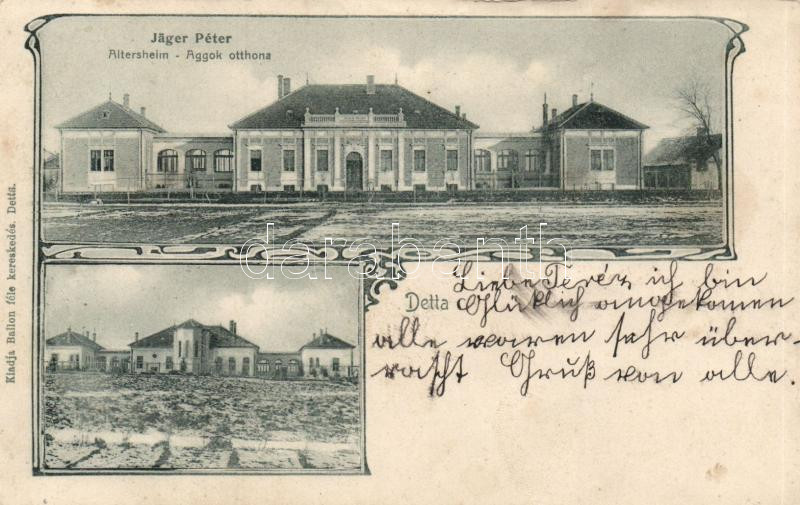 Jäger Péter
Altersheim - Aggok otthona
Kiadja Ballon féle kereskedés. Detta.
darabanth
Detta
Liebe Teréz ich bin
Glüklich angekomen
alle waren sehr über-
rascht Gruß von alle.